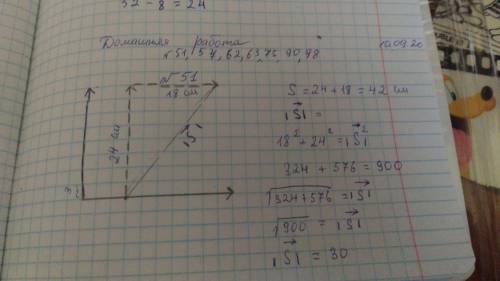 32 - 8 = 24
Домашняя работа
10.09.20
№51, 57, 62, 63, 75, 90, 98
№51
18 см
24 см
S
S = 24 + 18 = 42 см
|S| =
18² + 24² = |S|²
324 + 576 = 900
√324+576 = |S|
√900 = |S|
|S| = 30